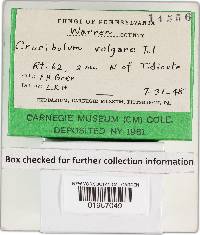 FUNGI OF PENNSYLVANIA
Warren COUNTY
Crucibulum vulgare Tul
Rt. 62, 2 mi. N of Tidioute
7-31-48
HERBARIUM, CARNEGIE MUSEUM, PITTSBURGH, PA.
CARNEGIE MUSEUM (CM) COLL.
DEPOSITED NY 1981
Box checked for further collection information
NEW YORK BOTANICAL GARDEN